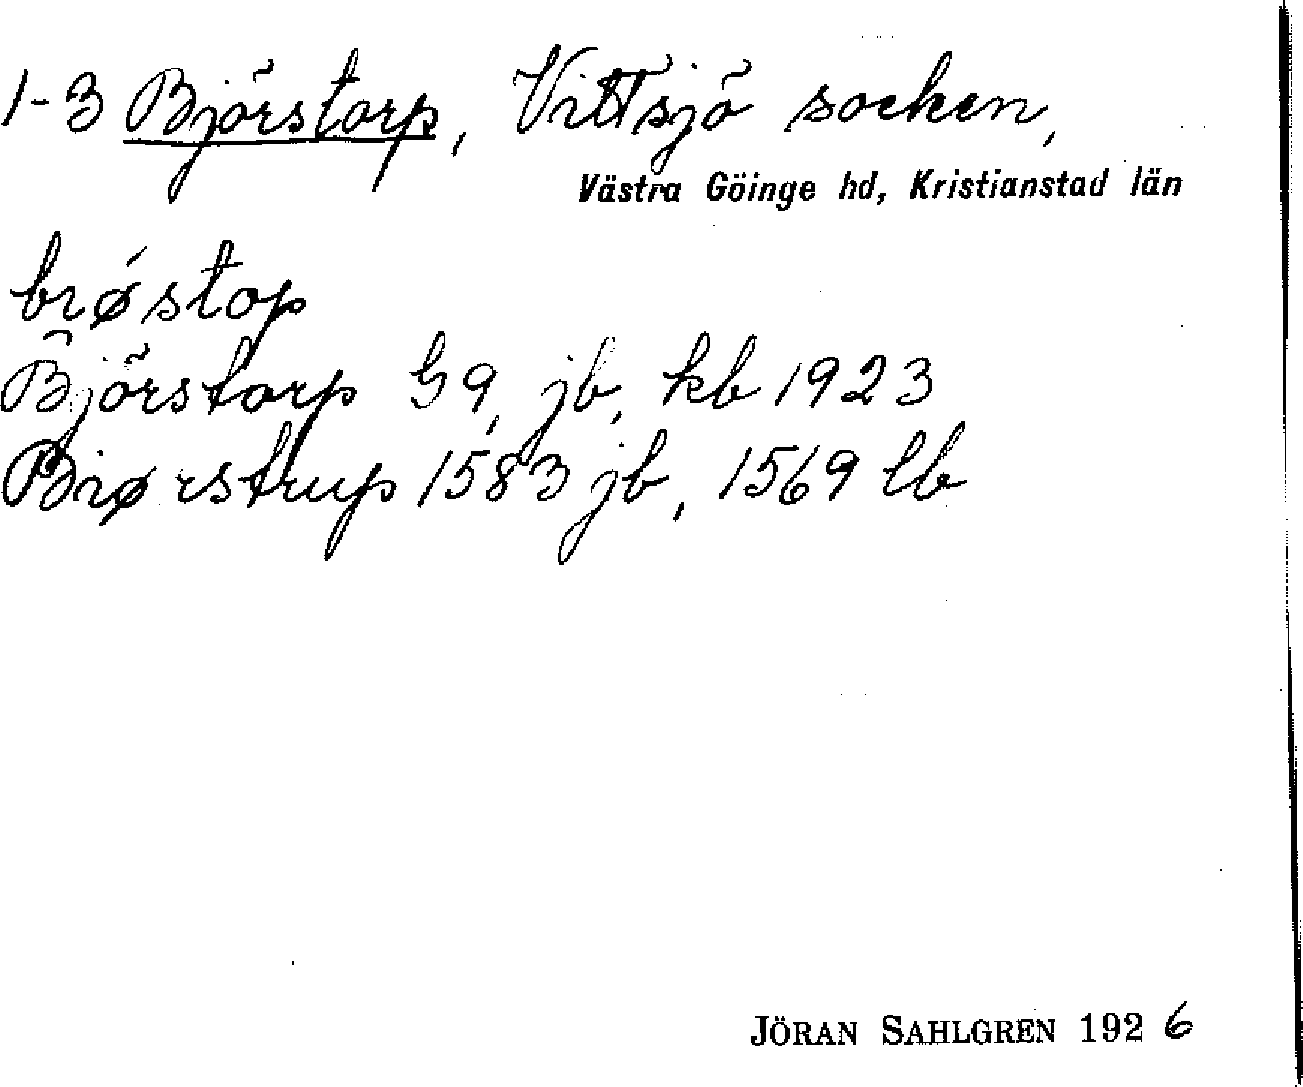 1-3 Björstorp, Vittsjö socken,
Västra Göinge hd, Kristianstad län
brǿstop
Björstorp G9, jb, kb 1923
Biørstrup 1583 jb, 1569 lb
JÖRAN SAHLGREN 1926